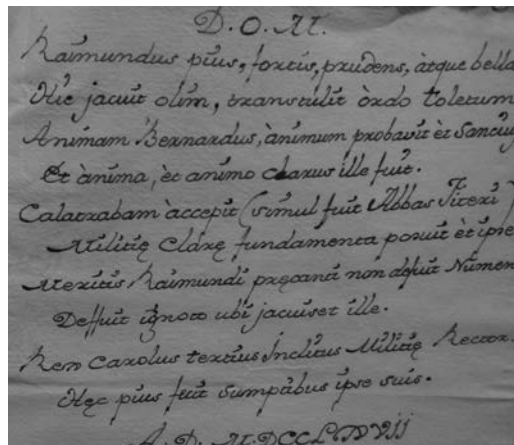 D. O. M.
Raimundus pius, fortis, prudens, àtque bella
Hic jacuit olim, transtulit òrdo toletum
Animam Bernardus, ànimum probavit èt Sancius
Et ànima, èt animo clarus ille fuit.
Calatrabam àccepit (simul fuit Abbas Fiteri)
Militię clarę fundamenta posuit èt ipse
Meritis Raimundi pręcanti non defuit Numen
Deffuit ignoto ubi jacuiset ille.
Rex Carolus tertius Inclitus Militię Rector.
Hęc pius fuit sumptibus ipse suis.
A. D. M.DCCL